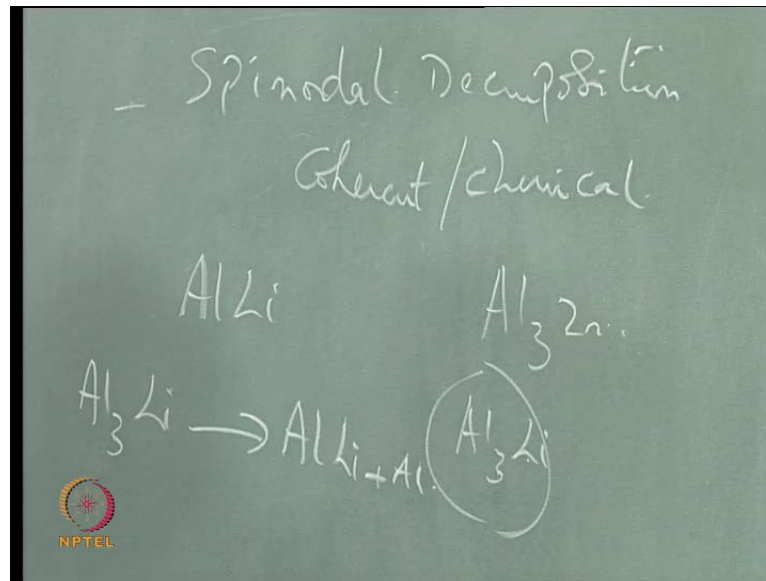 - Spinodal Decomposition
Coherent/chemical.
AlLi Al3 Zn..
Al3Li → AlLi + Al. Al3Li
NPTEL